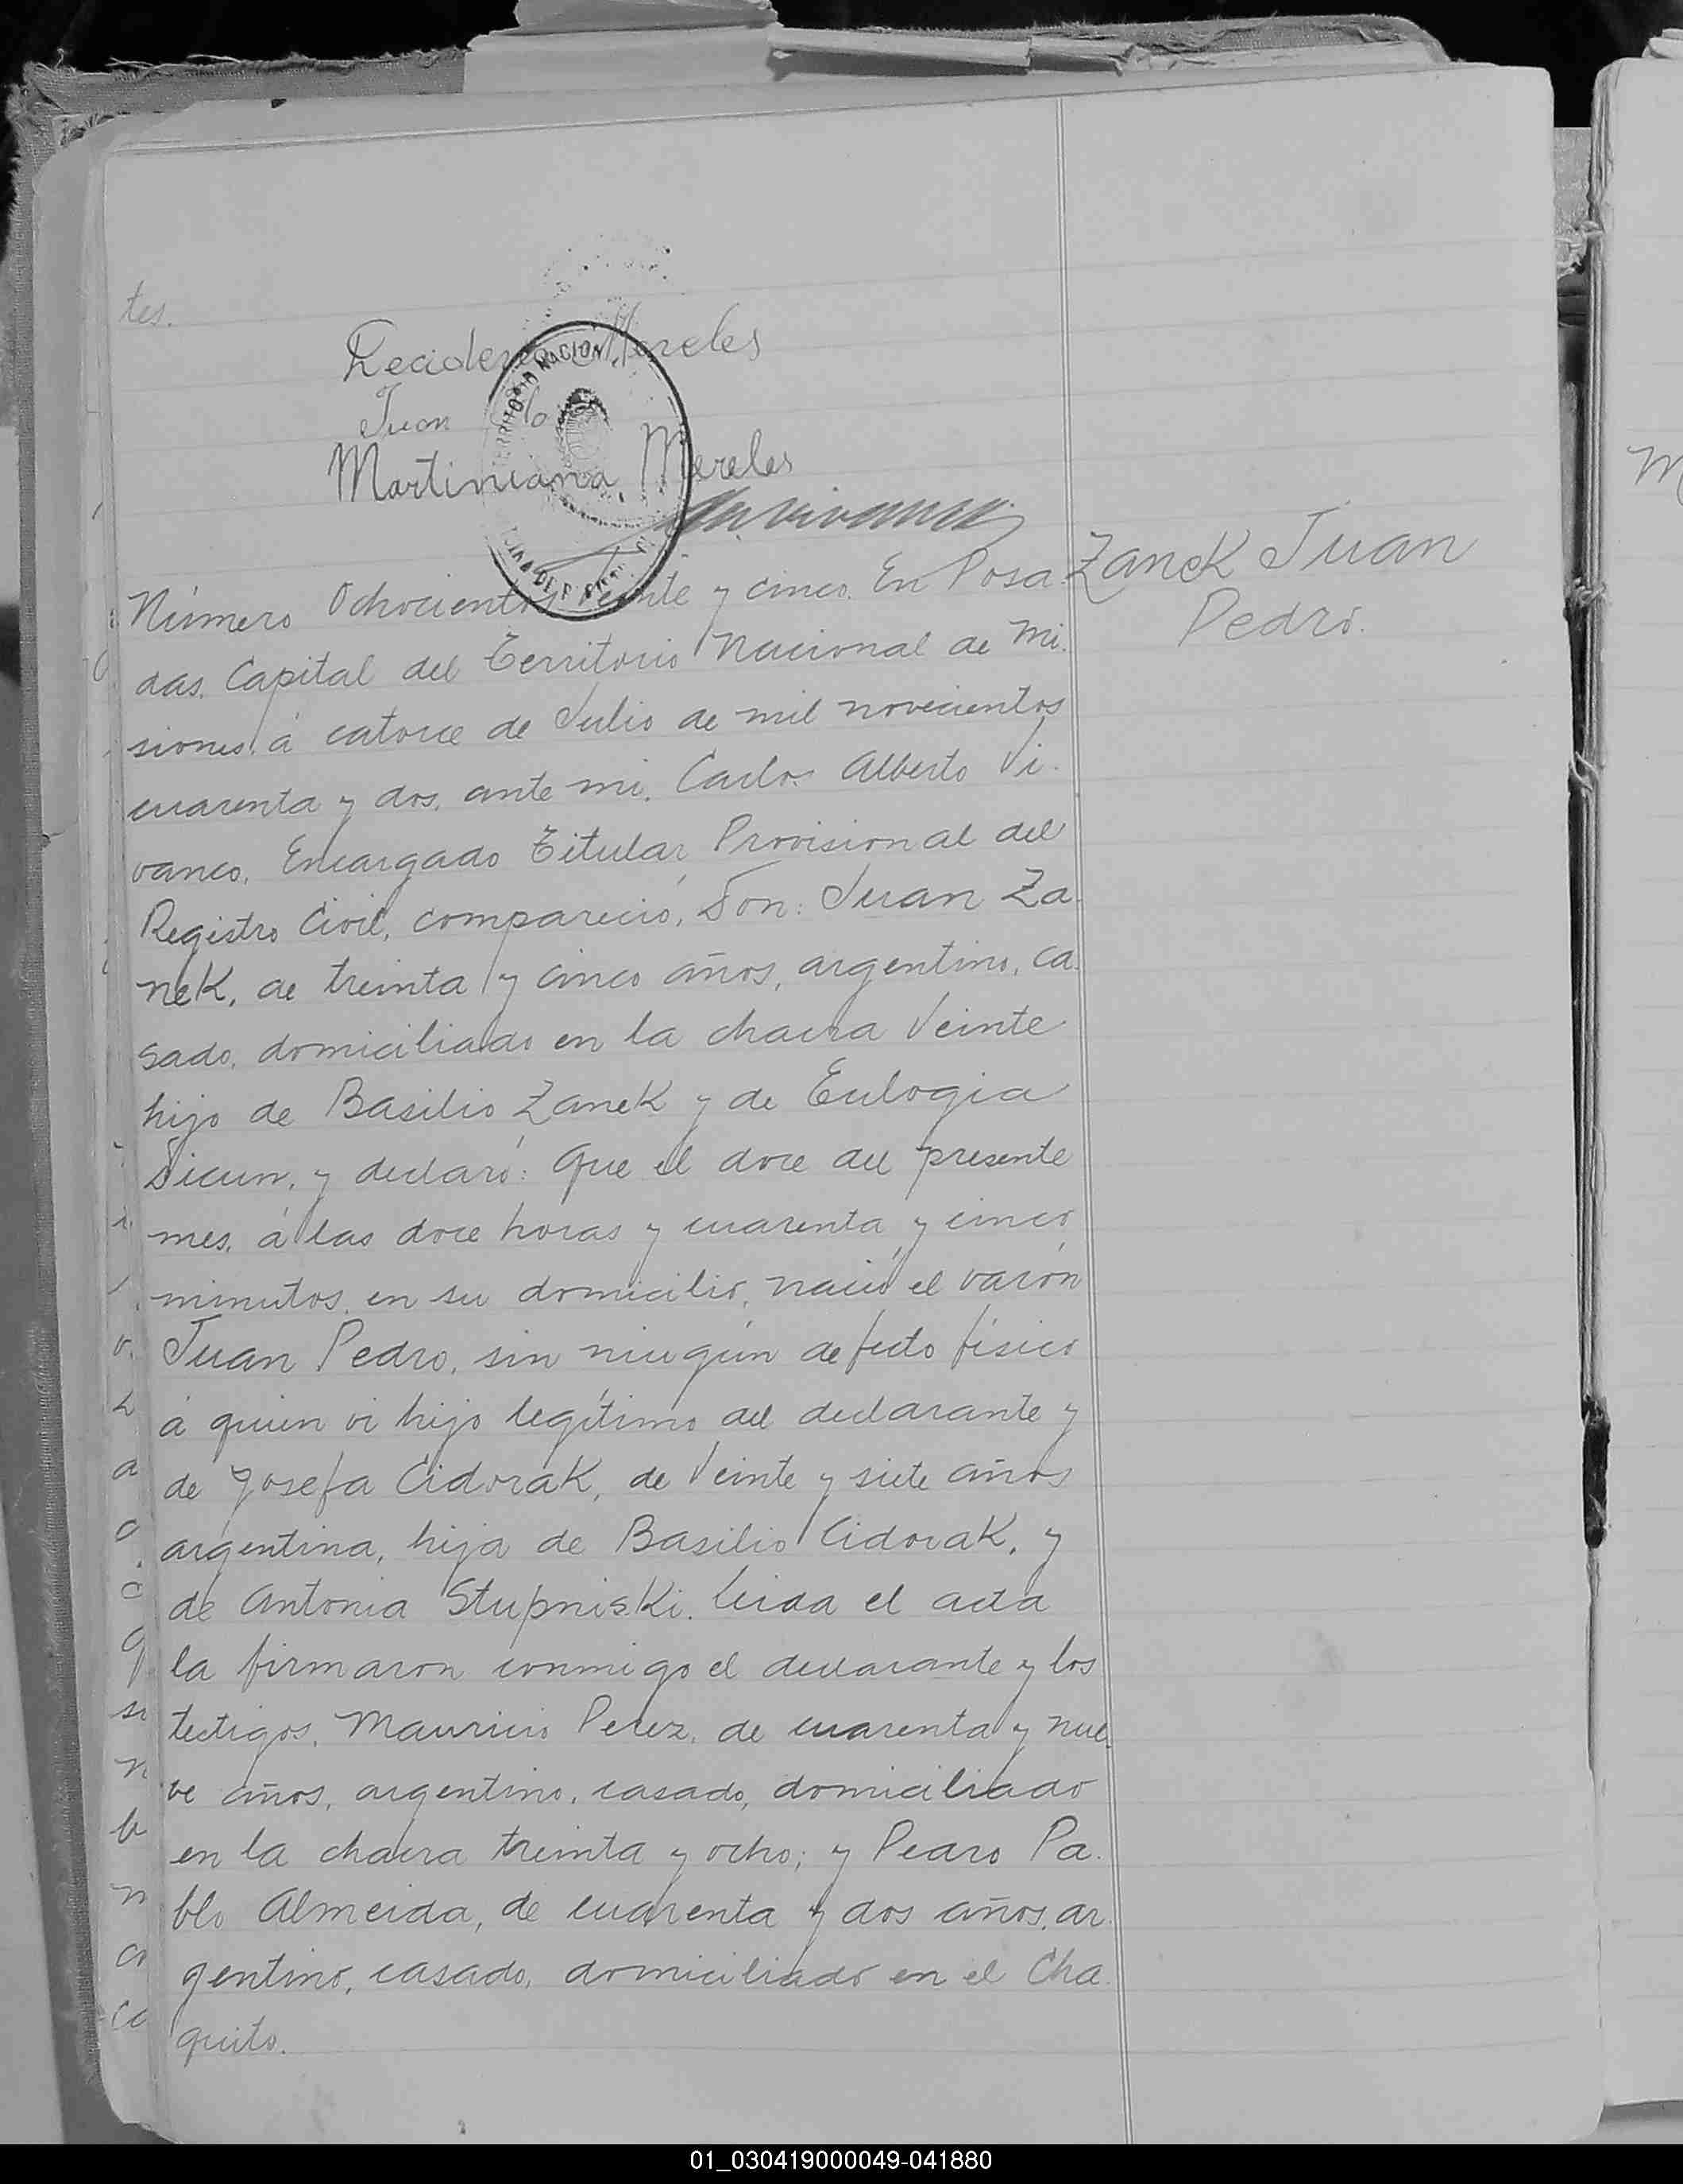 tes.
Mereles
Juan
Martiniana Mereles
Número Ochocientos veinte y cinco. En Posa
das. Capital del Territorio Nacional de Mi.
siones, á catorce de Julio de mil novecientos
cuarenta y dos, ante mi. Carlos Alberto Vi.
vanco. Encargado Titular, Provisional del
Registro Civil, compareció, Don: Juan Za
nek, de treinta y cinco años, argentino, ca.
sado, domiciliado en la chacra Veinte
hijo de Basilio Zanek y de Eulogia
Dicun, y declaró: Que el doce del presente
mes, á las doce horas y cuarenta y cinco
minutos, en su domicilio, nació el varón
Juan Pedro, sin ningún defecto físico
á quien vi hijo legítimo del declarante y
de Josefa Cidorak, de Veinte y siete años
argentina, hija de Basilio Cidorak, y
de Antonia Stupniski. Leida el acta
la firmaron conmigo el declarante y los
tectigos, Mauricio Perez, de cuarenta y nue
ve años, argentino, casado, domiciliado
en la chacra treinta y ocho; y Pedro Pa.
blo Almeida, de cuarenta y dos años, ar
gentino, casado, domiciliado en el Cha.
quito.
Zanek Juan
Pedro.
01_030419000049-041880